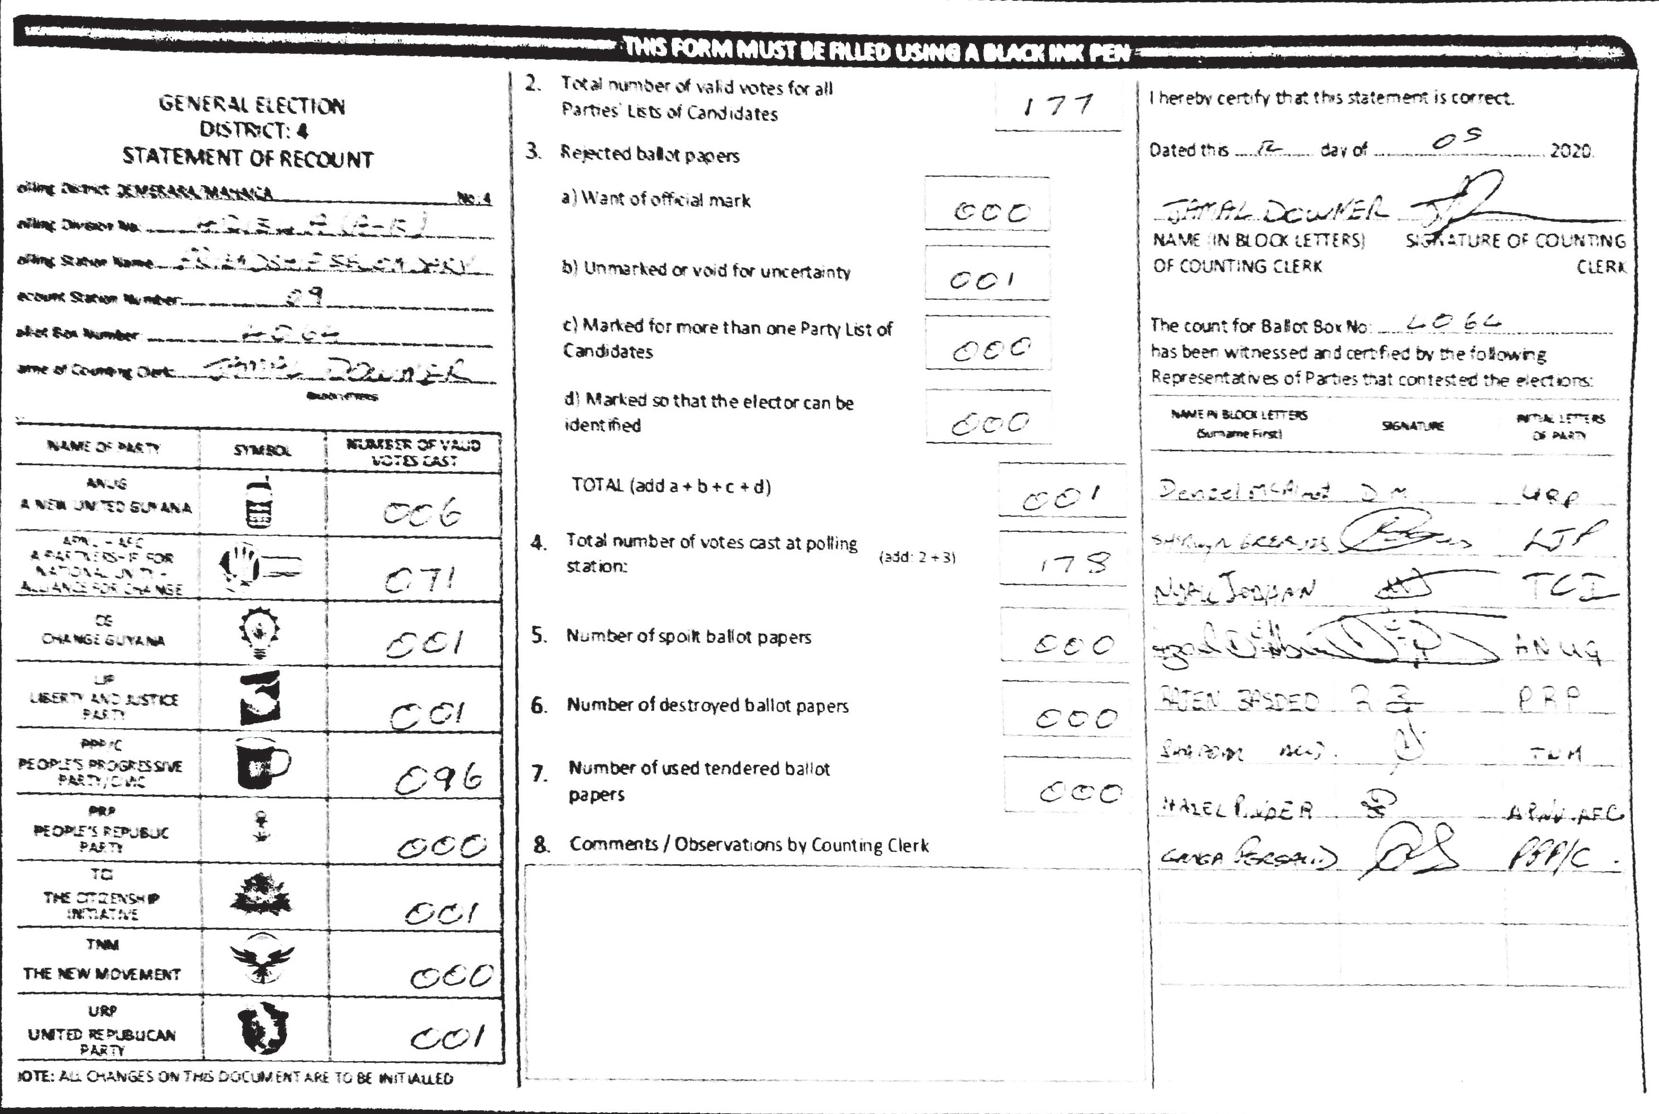 THIS FORM MUST BE FILLED USING A BLACK INK PEN
GENERAL ELECTION
DISTRICT: 4
STATEMENT OF RECOUNT
olling District DEMERARA/MAHAICA No: 4
olling Division No.
olling Station Name
ecount Station Number 09
allot Box Number 4064
ame of Counting Clerk: JAMAL DOWNER
BLOCK LETTERS
NAME OF PARTY SYMBOL NUMBER OF VALID VOTES CAST
ANUG
A NEW UNITED GUYANA 006
APNU - AFC
A PARTNERSHIP FOR
NATIONAL UNITY -
ALLIANCE FOR CHANGE 071
CG
CHANGE GUYANA 001
LJP
LIBERTY AND JUSTICE
PARTY 001
PPP/C
PEOPLE'S PROGRESSIVE
PARTY/CIVIC 096
PRP
PEOPLE'S REPUBLIC
PARTY 000
TCI
THE CITIZENSHIP
INITIATIVE 001
TNM
THE NEW MOVEMENT 000
URP
UNITED REPUBLICAN
PARTY 001
NOTE: ALL CHANGES ON THIS DOCUMENT ARE TO BE INITIALLED
2. Total number of valid votes for all
Parties' Lists of Candidates 177
3. Rejected ballot papers
a) Want of official mark 000
b) Unmarked or void for uncertainty 001
c) Marked for more than one Party List of
Candidates 000
d) Marked so that the elector can be
identified 000
TOTAL (add a + b + c + d) 001
4. Total number of votes cast at polling
station: (add: 2 + 3) 178
5. Number of spoilt ballot papers 000
6. Number of destroyed ballot papers 000
7. Number of used tendered ballot
papers 000
8. Comments / Observations by Counting Clerk
I hereby certify that this statement is correct.
Dated this 12 day of 05 2020.
JAMAL DOWNER
NAME (IN BLOCK LETTERS) SIGNATURE OF COUNTING
OF COUNTING CLERK CLERK
The count for Ballot Box No: 4064
has been witnessed and certified by the following
Representatives of Parties that contested the elections:
NAME IN BLOCK LETTERS SIGNATURE INITIAL LETTERS
(Surname First) OF PARTY
Denzel D M URP
LJP
TCI
ANUG
PRP
TNM
HAZEL PINDER APNU.AFC
GANGA PERSAUD PPP/C.